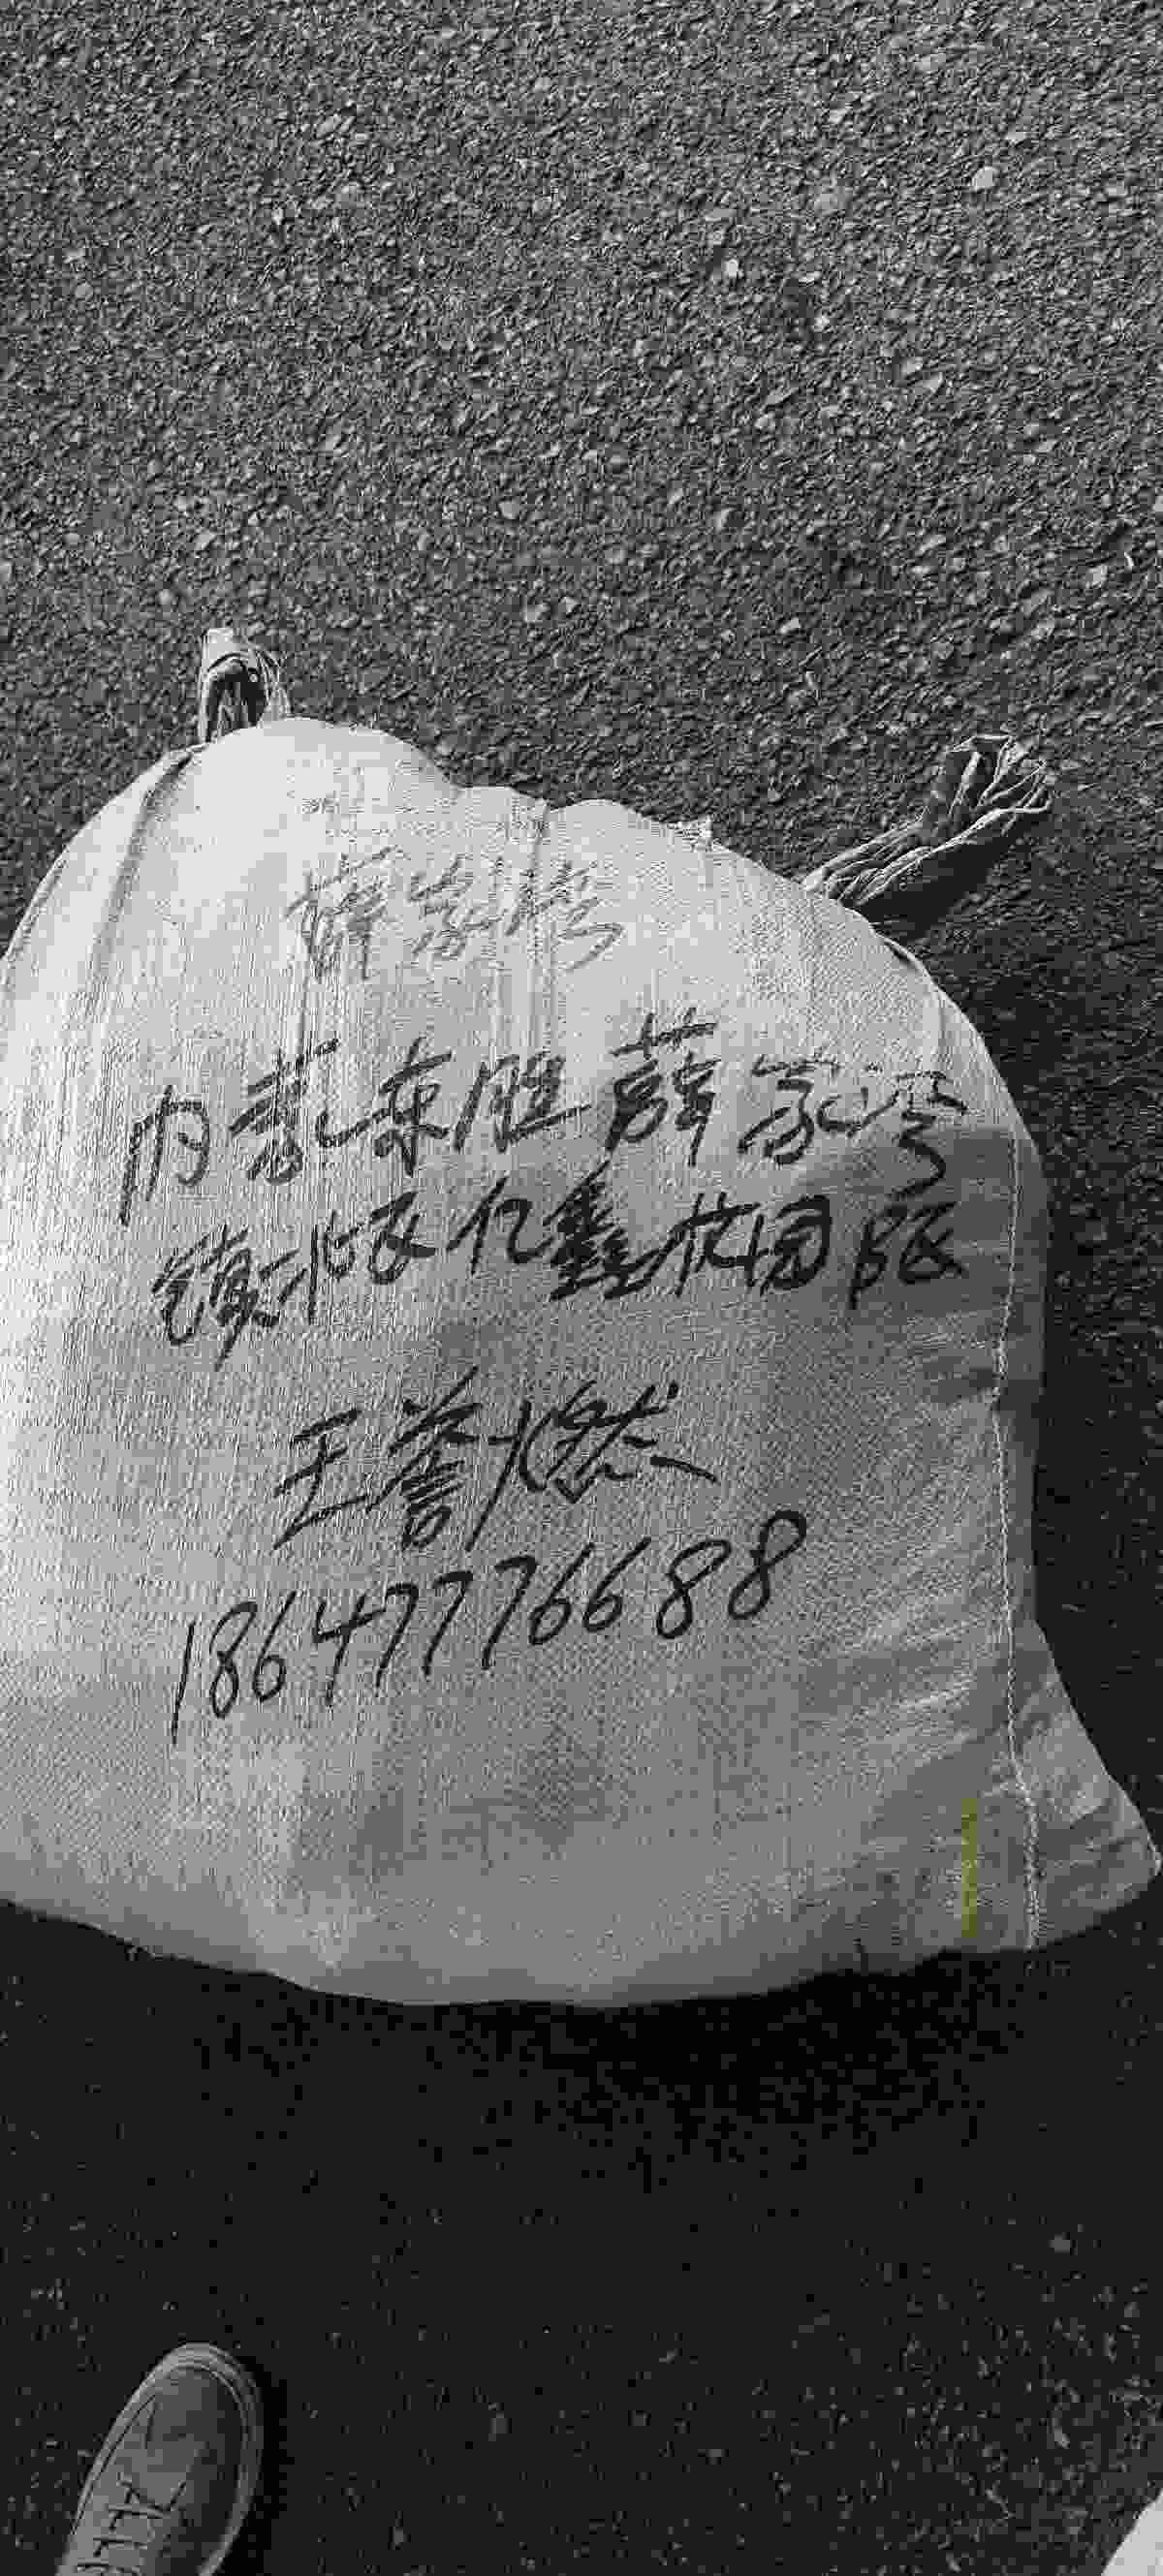 薛家湾
内蒙东胜薛家湾
镇北亿鑫花园
王誉燃
18647776688